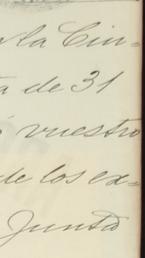 la Ciu-
a de 31
vuestro
de los ex-
Junta